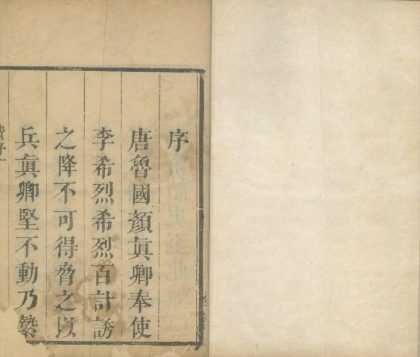 序
唐魯國顏眞卿奉使
李希烈希烈百計誘
之降不可得脅之以
兵眞卿堅不動乃縶